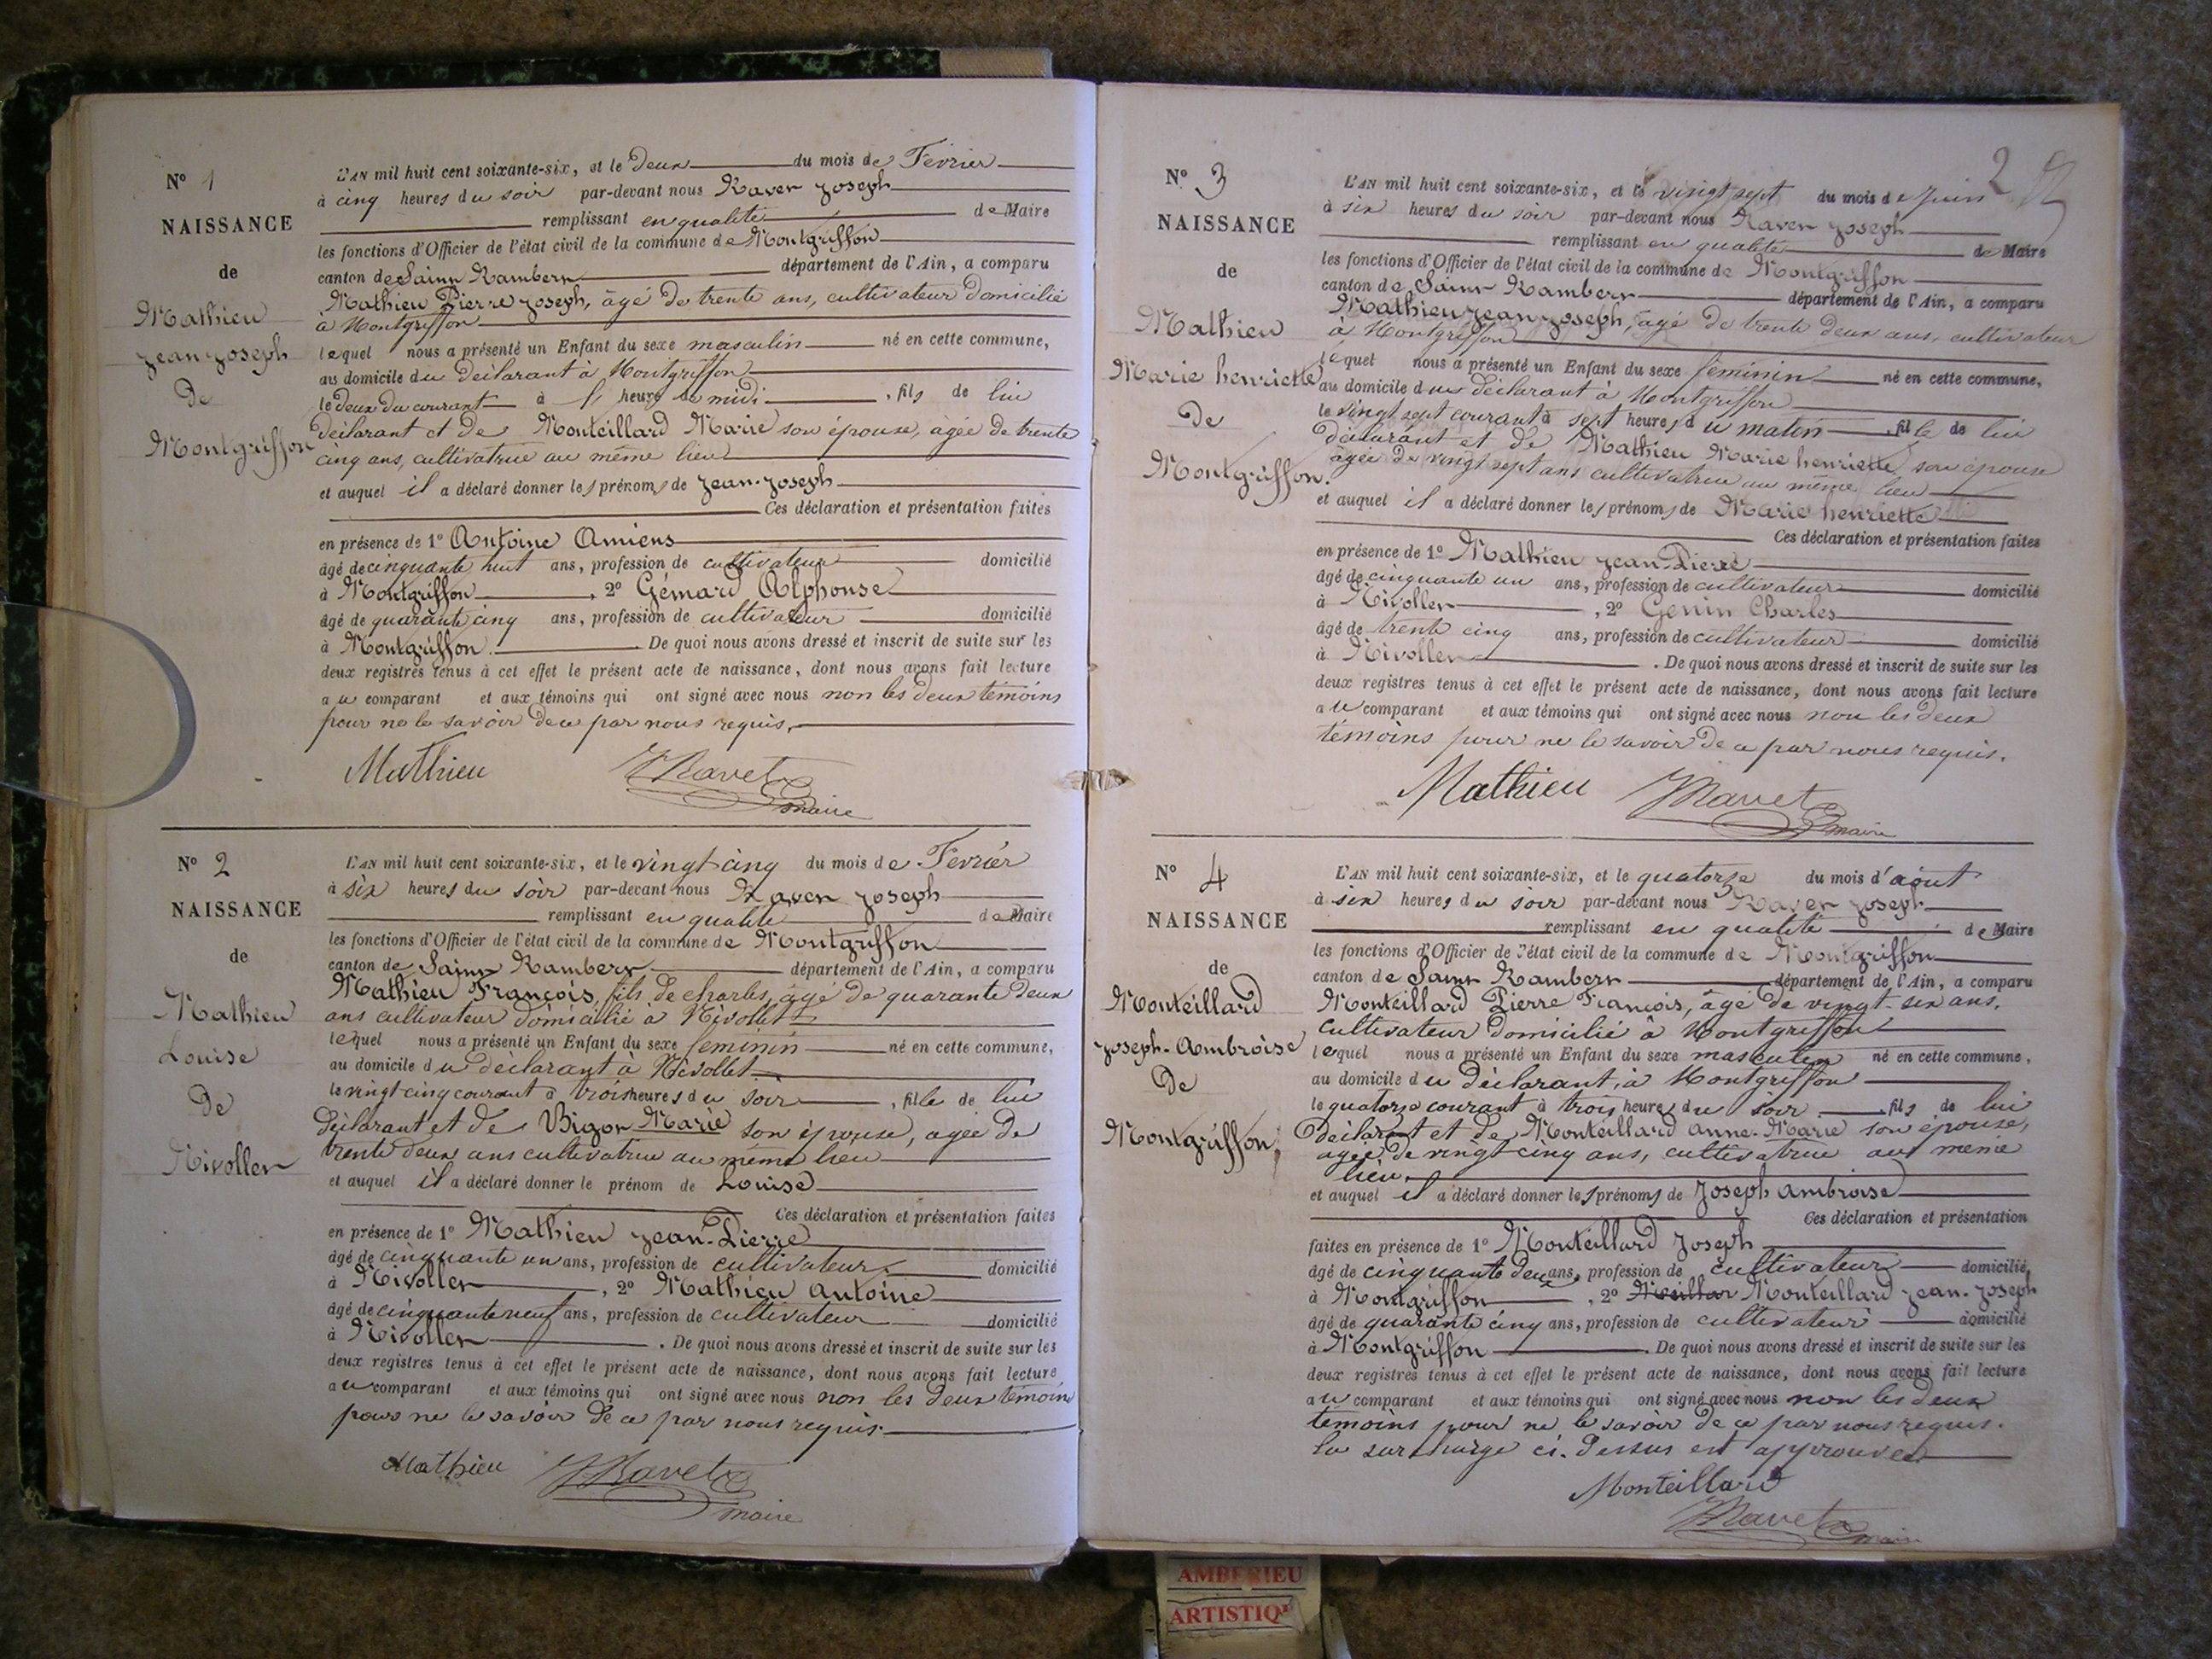 N° 1
NAISSANCE
de
Mathieu
Jean Joseph
De
Montgriffon
L'AN mil huit cent soixante-six, et le Deux du mois de Février
à cinq heures du soir par-devant nous Ravet Joseph
remplissant en qualité de Maire
les fonctions d'Officier de l'état civil de la commune de Montgriffon
canton de Saint Rambert département de l'Ain, a comparu
Mathieu Pierre Joseph, âgé de trente ans, cultivateur domicilié
à Montgriffon
lequel nous a présenté un Enfant du sexe masculin né en cette commune,
au domicile du déclarant à Montgriffon
le deux du courant à heure de midi , fils de lui
déclarant et de Monteillard Marie son épouse, âgée de trente
cinq ans, cultivatrice au même lieu
et auquel il a déclaré donner les prénoms de Jean-Joseph
Ces déclaration et présentation faites
en présence de 1° Antoine Amiens
âgé de cinquante huit ans, profession de cultivateur domicilié
à Montgriffon , 2° Gémard Alphonse
âgé de quarante cinq ans, profession de cultivateur domicilié
à Montgriffon. De quoi nous avons dressé et inscrit de suite sur les
deux registres tenus à cet effet le présent acte de naissance, dont nous avons fait lecture
au comparant et aux témoins qui ont signé avec nous non les deux témoins
pour ne le savoir de ce par nous requis.
Mathieu JRavet
maire
N° 2
NAISSANCE
de
Mathieu
Louise
De
Nivollet
L'AN mil huit cent soixante-six, et le vingt-cinq du mois de Février
à six heures du soir par-devant nous Ravet Joseph
remplissant en qualité de Maire
les fonctions d'Officier de l'état civil de la commune de Montgriffon
canton de Saint Rambert département de l'Ain, a comparu
Mathieu François, fils de charles, âgé de quarante deux
ans cultivateur domicilié à Nivollet
lequel nous a présenté un Enfant du sexe féminin né en cette commune,
au domicile du déclarant à Nivollet
le vingt-cinq courant à trois heures du soir , fille de lui
déclarant et de Bigot Marie son épouse, agée de
trente deux ans cultivatrice au même lieu
et auquel il a déclaré donner le prénom de Louise
Ces déclaration et présentation faites
en présence de 1° Mathieu Jean-Pierre
âgé de cinquante un ans, profession de cultivateur domicilié
à Nivollet , 2° Mathieu Antoine
âgé de cinquante neuf ans, profession de cultivateur domicilié
à Nivollet . De quoi nous avons dressé et inscrit de suite sur les
deux registres tenus à cet effet le présent acte de naissance, dont nous avons fait lecture
au comparant et aux témoins qui ont signé avec nous non les deux témoins
pour ne le savoir de ce par nous requis.
Mathieu JRavet
maire
2
N° 3
NAISSANCE
de
Mathieu
Marie henriette
De
Montgriffon.
L'AN mil huit cent soixante-six, et le vingt sept du mois de Juin
à six heures du soir par-devant nous Ravet Joseph
remplissant en qualité de Maire
les fonctions d'Officier de l'état civil de la commune de Montgriffon
canton de Saint Rambert département de l'Ain, a comparu
Mathieu Jean Joseph, âgé de trente deux ans, cultivateur
à Montgriffon
lequel nous a présenté un Enfant du sexe féminin né en cette commune,
au domicile du déclarant à Montgriffon
le vingt sept courant à sept heures du matin , fille de lui
déclarant et de Mathieu Marie henriette son épouse
âgée de vingt sept ans cultivatrice au même lieu
et auquel il a déclaré donner les prénoms de Marie henriette
Ces déclaration et présentation faites
en présence de 1° Mathieu Jean-Pierre
âgé de cinquante un ans, profession de cultivateur domicilié
à Nivollet , 2° Genin Charles
âgé de trente cinq ans, profession de cultivateur domicilié
à Nivollet . De quoi nous avons dressé et inscrit de suite sur les
deux registres tenus à cet effet le présent acte de naissance, dont nous avons fait lecture
au comparant et aux témoins qui ont signé avec nous non les deux
témoins pour ne le savoir de ce par nous requis.
Mathieu JRavet
maire
N° 4
NAISSANCE
de
Monteillard
Joseph-Ambroise
De
Montgriffon
L'AN mil huit cent soixante-six, et le quatorze du mois d'août
à six heures du soir par-devant nous Ravet Joseph
remplissant en qualité de Maire
les fonctions d'Officier de l'état civil de la commune de Montgriffon
canton de Saint Rambert département de l'Ain, a comparu
Monteillard Pierre François, âgé de vingt-six ans,
cultivateur domicilié à Montgriffon
lequel nous a présenté un Enfant du sexe masculin né en cette commune,
au domicile du déclarant, à Montgriffon
le quatorze courant à trois heures du soir , fils de lui
déclarant et de Monteillard Anne-Marie son épouse,
agée de vingt cinq ans, cultivatrice au même
lieu.
et auquel il a déclaré donner les prénoms de Joseph ambroise
Ces déclaration et présentation
faites en présence de 1° Monteillard Joseph
âgé de cinquante deux ans, profession de cultivateur domicilié,
à Montgriffon , 2° Monteillard Jean-Joseph
âgé de quarante cinq ans, profession de cultivateur domicilié
à Montgriffon . De quoi nous avons dressé et inscrit de suite sur les
deux registres tenus à cet effet le présent acte de naissance, dont nous avons fait lecture
au comparant et aux témoins qui ont signé avec nous non les deux
témoins pour ne le savoir de ce par nous requis.
la surcharge ci-dessus est approuvée
Monteillard
JRavet
maire
AMBERIEU
ARTISTIQ